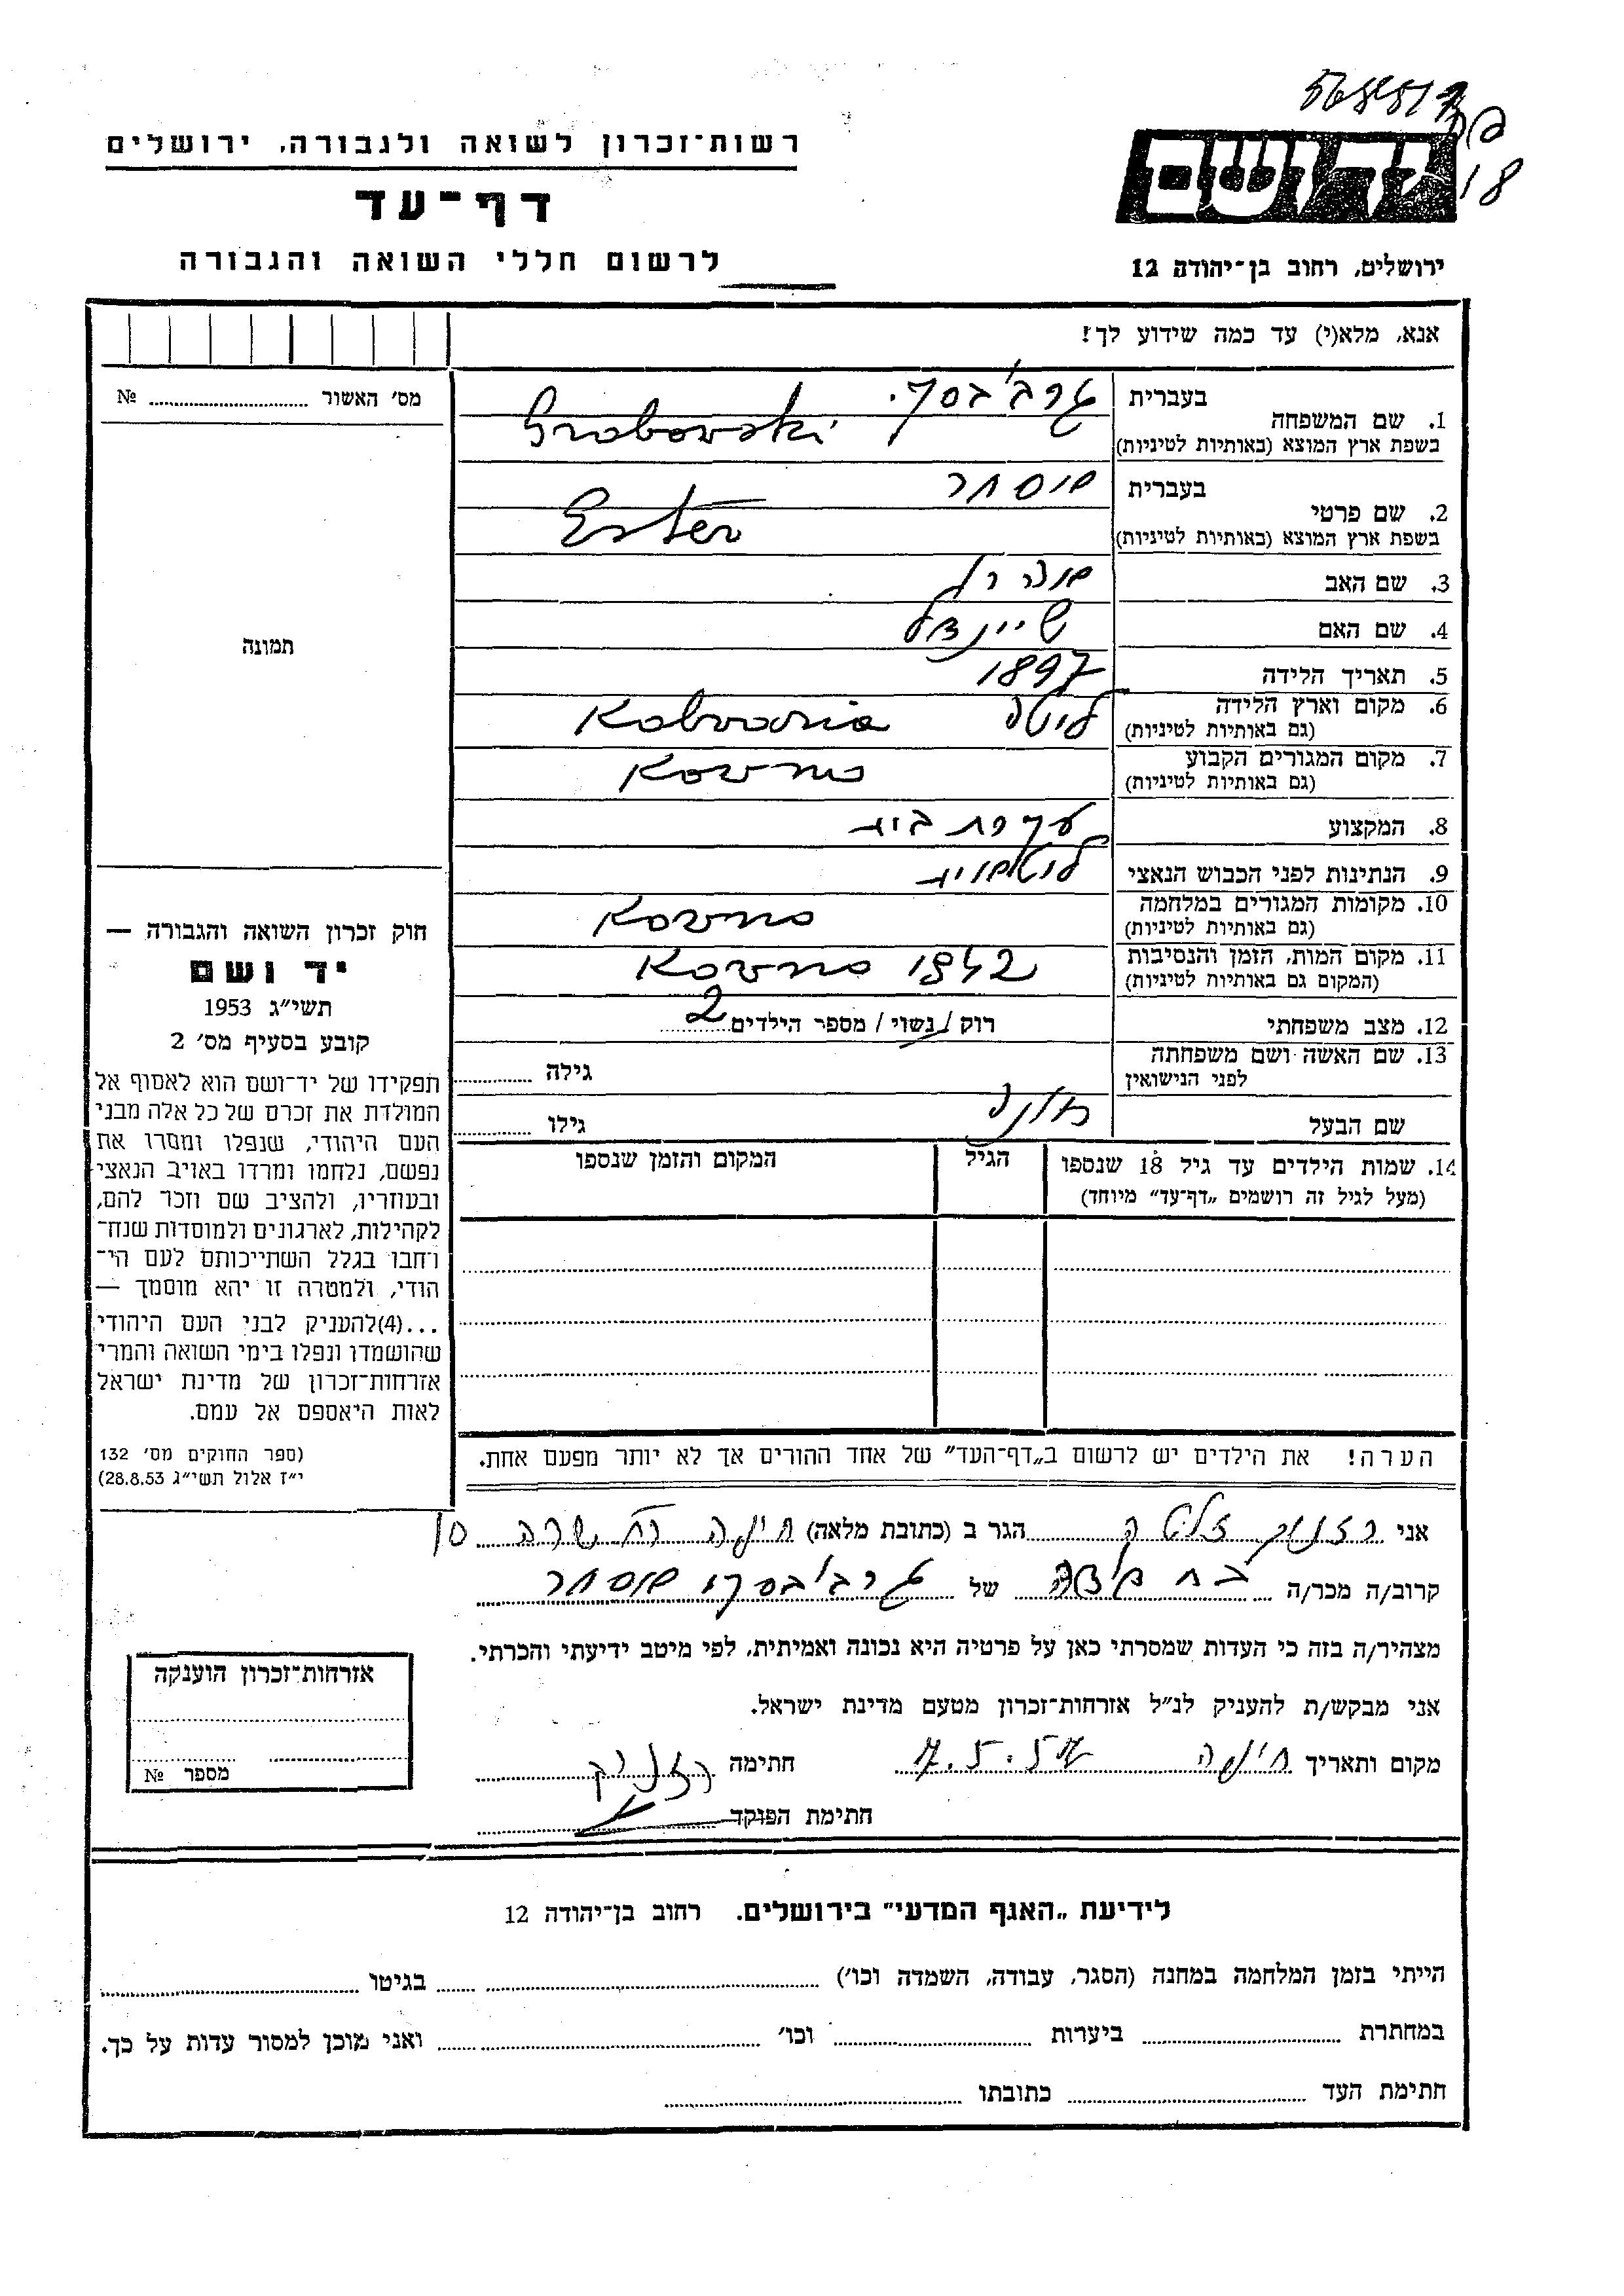 רשות־זכרון לשואה ולגבורה, ירושלים
דף־עד
לרשום חללי השואה והגבורה
יד ושם
ירושלים, רחוב בן־יהודה 12
18
אנא, מלא(י) עד כמה שידוע לך!
מס׳ האשור № 
תמונה
1. שם המשפחה בעברית
בשפת ארץ המוצא (באותיות לטיניות) Grabovski
2. שם פרטי בעברית
בשפת ארץ המוצא (באותיות לטיניות) Ester
3. שם האב
4. שם האם שיינדל
5. תאריך הלידה 1897
6. מקום וארץ הלידה ליטא
(גם באותיות לטיניות)
7. מקום המגורים הקבוע Kovno
(גם באותיות לטיניות)
8. המקצוע עקרת בית
9. הנתינות לפני הכבוש הנאצי ליטאית
10. מקומות המגורים במלחמה Kovno
(גם באותיות לטיניות)
11. מקום המות, הזמן והנסיבות Kovno 1942
(המקום גם באותיות לטיניות)
12. מצב משפחתי רוק / נשוי / מספר הילדים 2
13. שם האשה ושם משפחתה
לפני הנישואין גילה
שם הבעל גילו
14. שמות הילדים עד גיל 18 שנספו הגיל המקום והזמן שנספו
(מעל לגיל זה רושמים „דף־עד” מיוחד)
הערה! את הילדים יש לרשום ב„דף־העד” של אחד ההורים אך לא יותר מפעם אחת.
חוק זכרון השואה והגבורה —
יד ושם
תשי״ג 1953
קובע בסעיף מס׳ 2
תפקידו של יד־ושם הוא לאסוף אל
המולדת את זכרם של כל אלה מבני
העם היהודי, שנפלו ומסרו את
נפשם, נלחמו ומרדו באויב הנאצי
ובעוזריו, ולהציב שם וזכר להם,
לקהילות, לארגונים ולמוסדות שנח־
רבו בגלל השתייכותם לעם הי־
הודי, ולמטרה זו יהא מוסמך —
...(4)להעניק לבני העם היהודי
שהושמדו ונפלו בימי השואה והמרי
אזרחות־זכרון של מדינת ישראל
לאות היאספם אל עמם.
(ספר החוקים מס׳ 132
י״ז אלול תשי״ג 28.8.53)
אני רזניק הגר ב (כתובת מלאה) חיפה רח שרה 10
קרוב/ה מכר/ה של
מצהיר/ה בזה כי העדות שמסרתי כאן על פרטיה היא נכונה ואמיתית, לפי מיטב ידיעתי והכרתי.
אני מבקש/ת להעניק לנ״ל אזרחות־זכרון מטעם מדינת ישראל.
מקום ותאריך חיפה חתימה רזניק
חתימת הפוקד
אזרחות־זכרון הוענקה
מספר №
לידיעת „האגף המדעי” בירושלים, רחוב בן־יהודה 12
הייתי בזמן המלחמה במחנה (הסגר, עבודה, השמדה וכו׳) בגיטו
במחתרת ביערות וכו׳ ואני מוכן למסור עדות על כך.
חתימת העד כתובתו